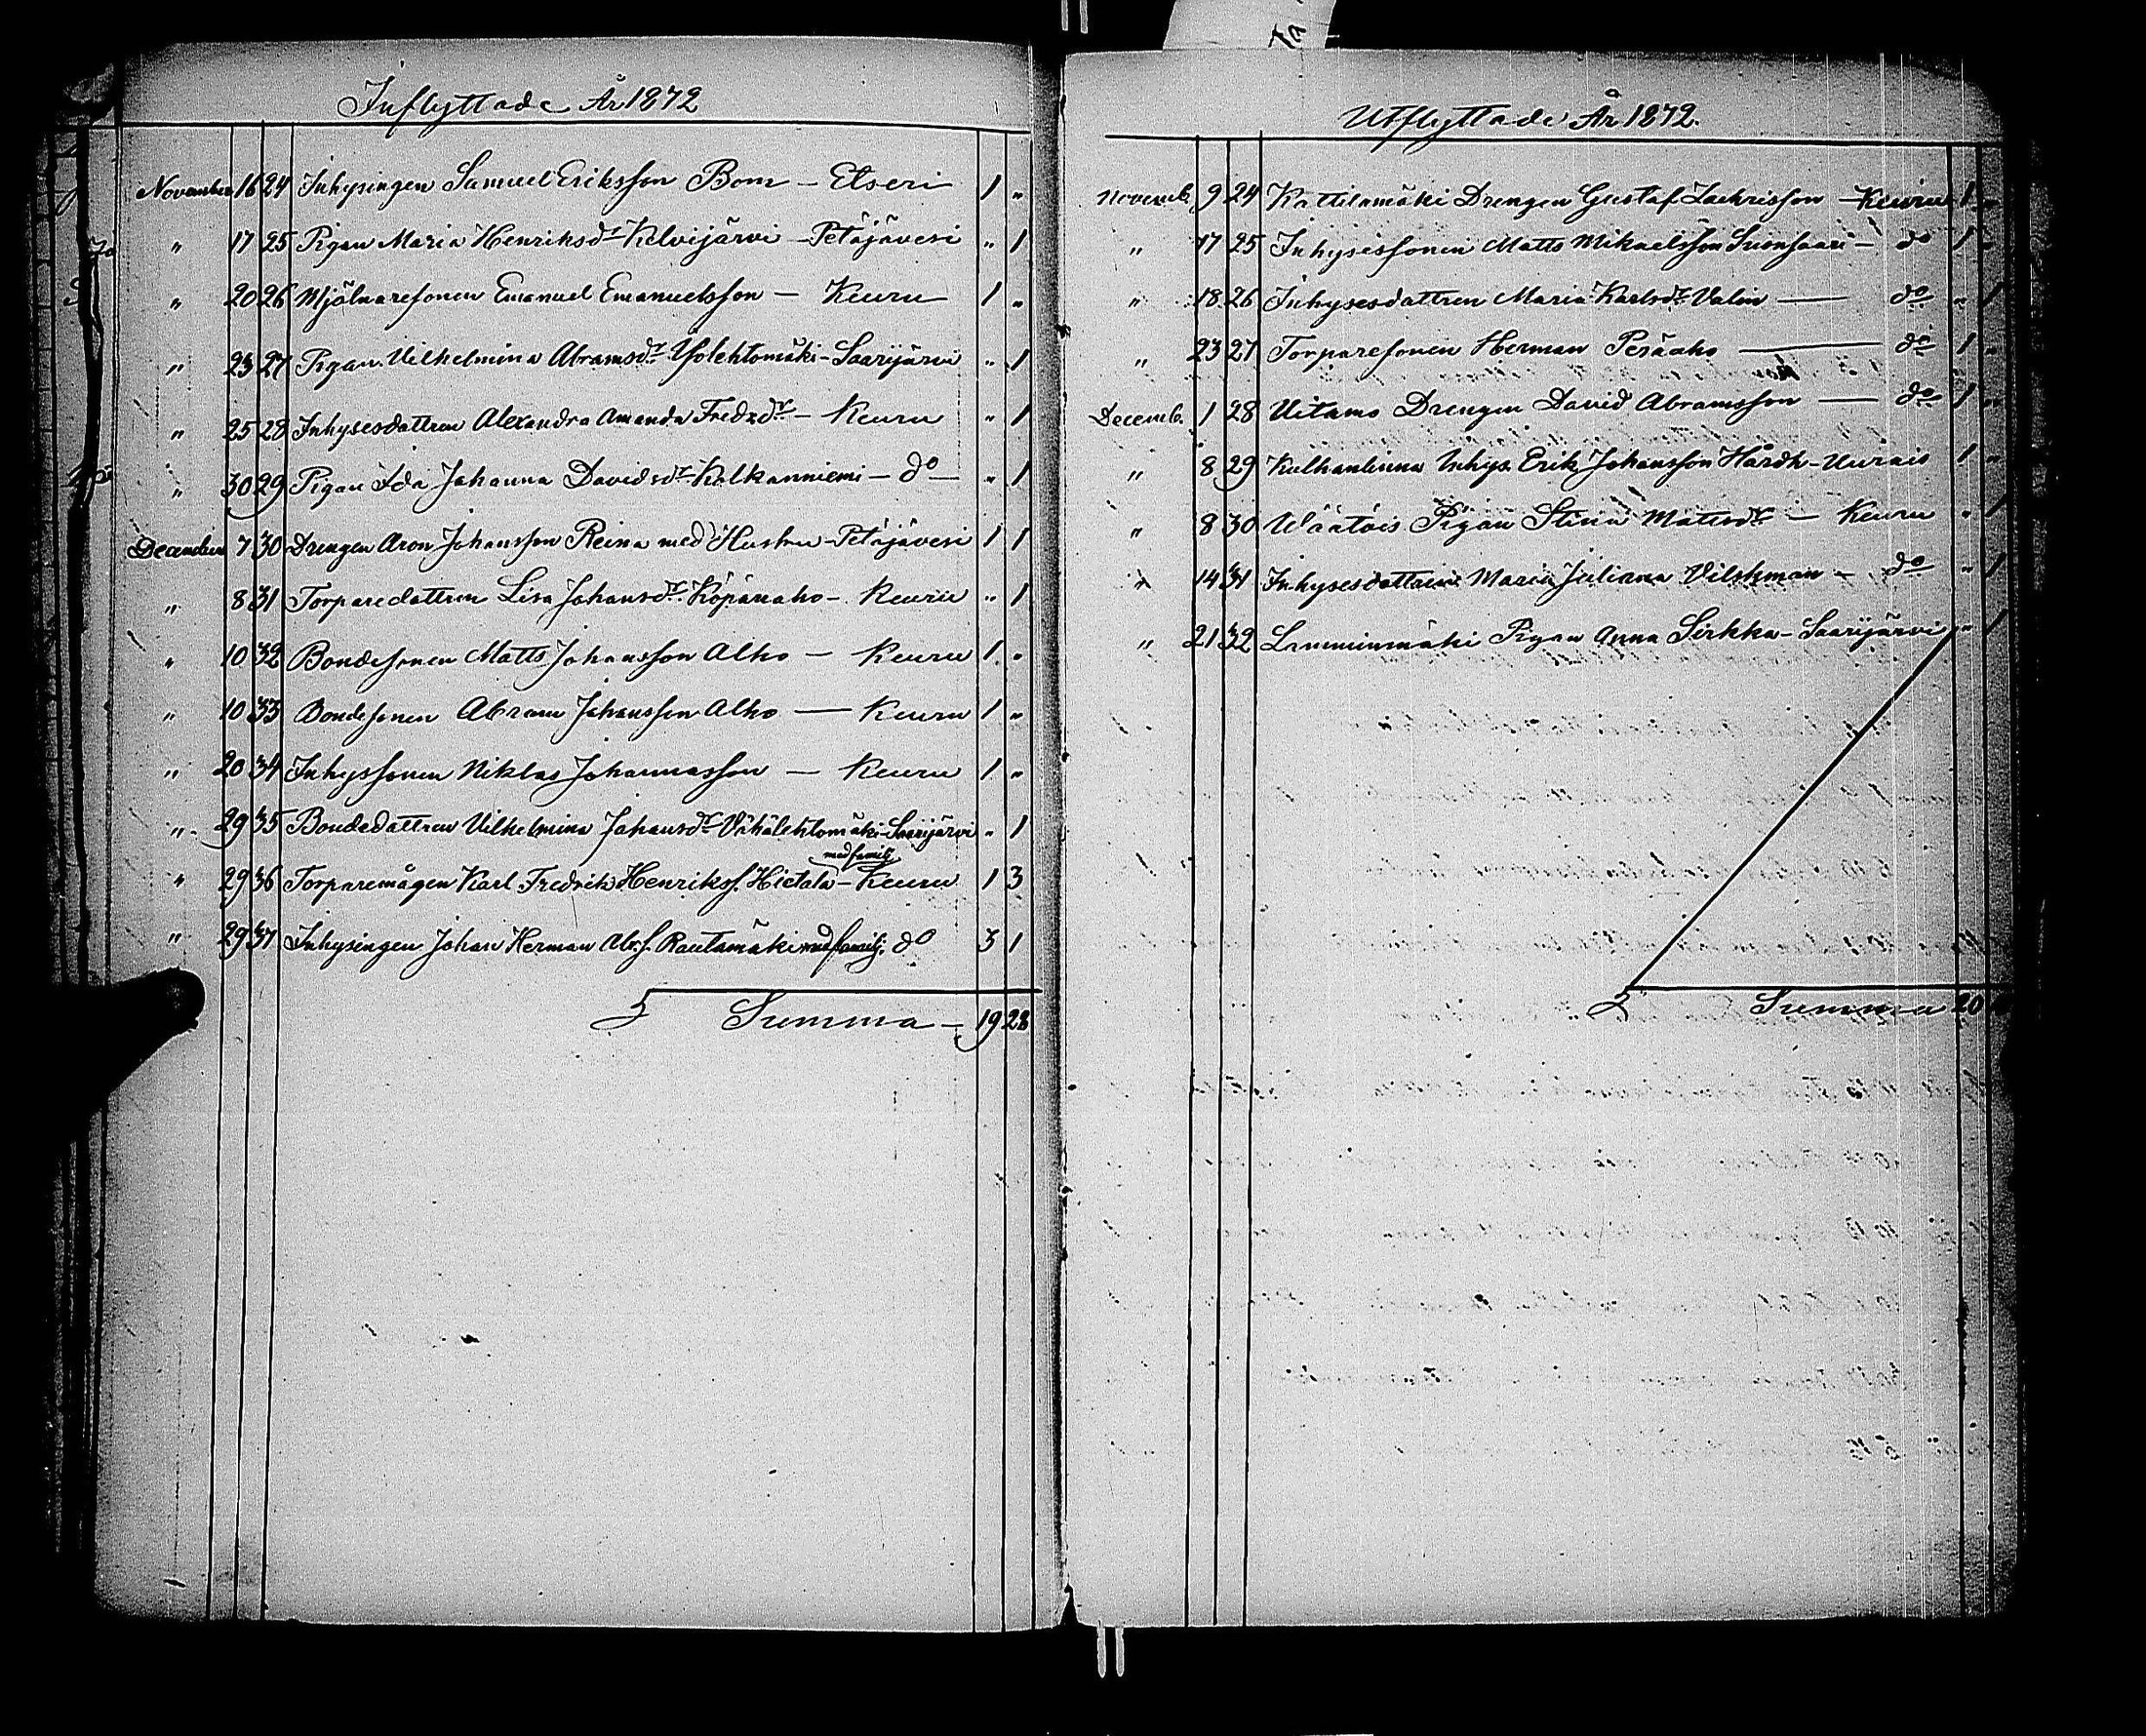 Inflyttade År 1872
November 16 24 Inhysingen Samuel Eriksson Bom – Etseri 1 "
" 17 25 Pigan Maria Henriksdr Kelvijärvi – Petäjävesi " 1
" 20 26 Mjölnaresonen Emanuel Emanuelsson – Keuru 1 "
" 23 27 Pigan Vilhelmina Abramsdr Ysolehtomäki – Saarijärvi " 1
" 25 28 Inhysesdattren Alexandra Amanda Fredrdr – Keuru " 1
" 30 29 Pigan Ida Johanna Davidsdr Kolkanniemi – do – " 1
December 7 30 Drengen Aron Johansson Reina med Hustru – Petäjävesi 1 1
" 8 31 Torparedattren Lisa Johansdr Köpänaho – Keuru " 1
" 10 32 Bondesonen Matts Johansson Alho – Keuru 1 "
" 10 33 Bondesonen Abram Johansson Alho – Keuru 1 "
" 20 34 Inhyssonen Niklas Johannasson – Keuru 1 "
" 29 35 Bondedattren Vilhelmina Johansdr Vähälehtomäki – Saarijärvi " 1
" 29 36 Torparemågen Karl Fredrik Henrikss. Hietala med familj – Keuru 1 3
" 29 37 Inhysingen Johan Herman Abr.s. Rautamäki med familj. do 3 1
Summa – 19 28
Utflyttade År 1872.
Novemb. 9 24 Kattilamäki Drengen Gustaf Zachrisson – Keuru 1 "
" 17 25 Inhysessonen Matts Mikaelsson Suonsaari – do 1 "
" 18 26 Inhysesdattren Maria Karlsdr Valin – do " 1
" 23 27 Torparesonen Herman Peräaho – do 1 "
Decemb. 1 28 Uitamo Drengen David Abramsson – do 1 "
" 8 29 Kulhanlinna Inhys. Erik Johansson Hårdh – Uurais 1 "
" 8 30 Wäätäis Pigan Stina Matsdr – Keuru " 1
" 14 31 Inhysesdattren Maria Juliana Vilskman – do " 1
" 21 32 Lamminmäki Pigan Anna Sirkka – Saarijärvi " 1
Summa 20